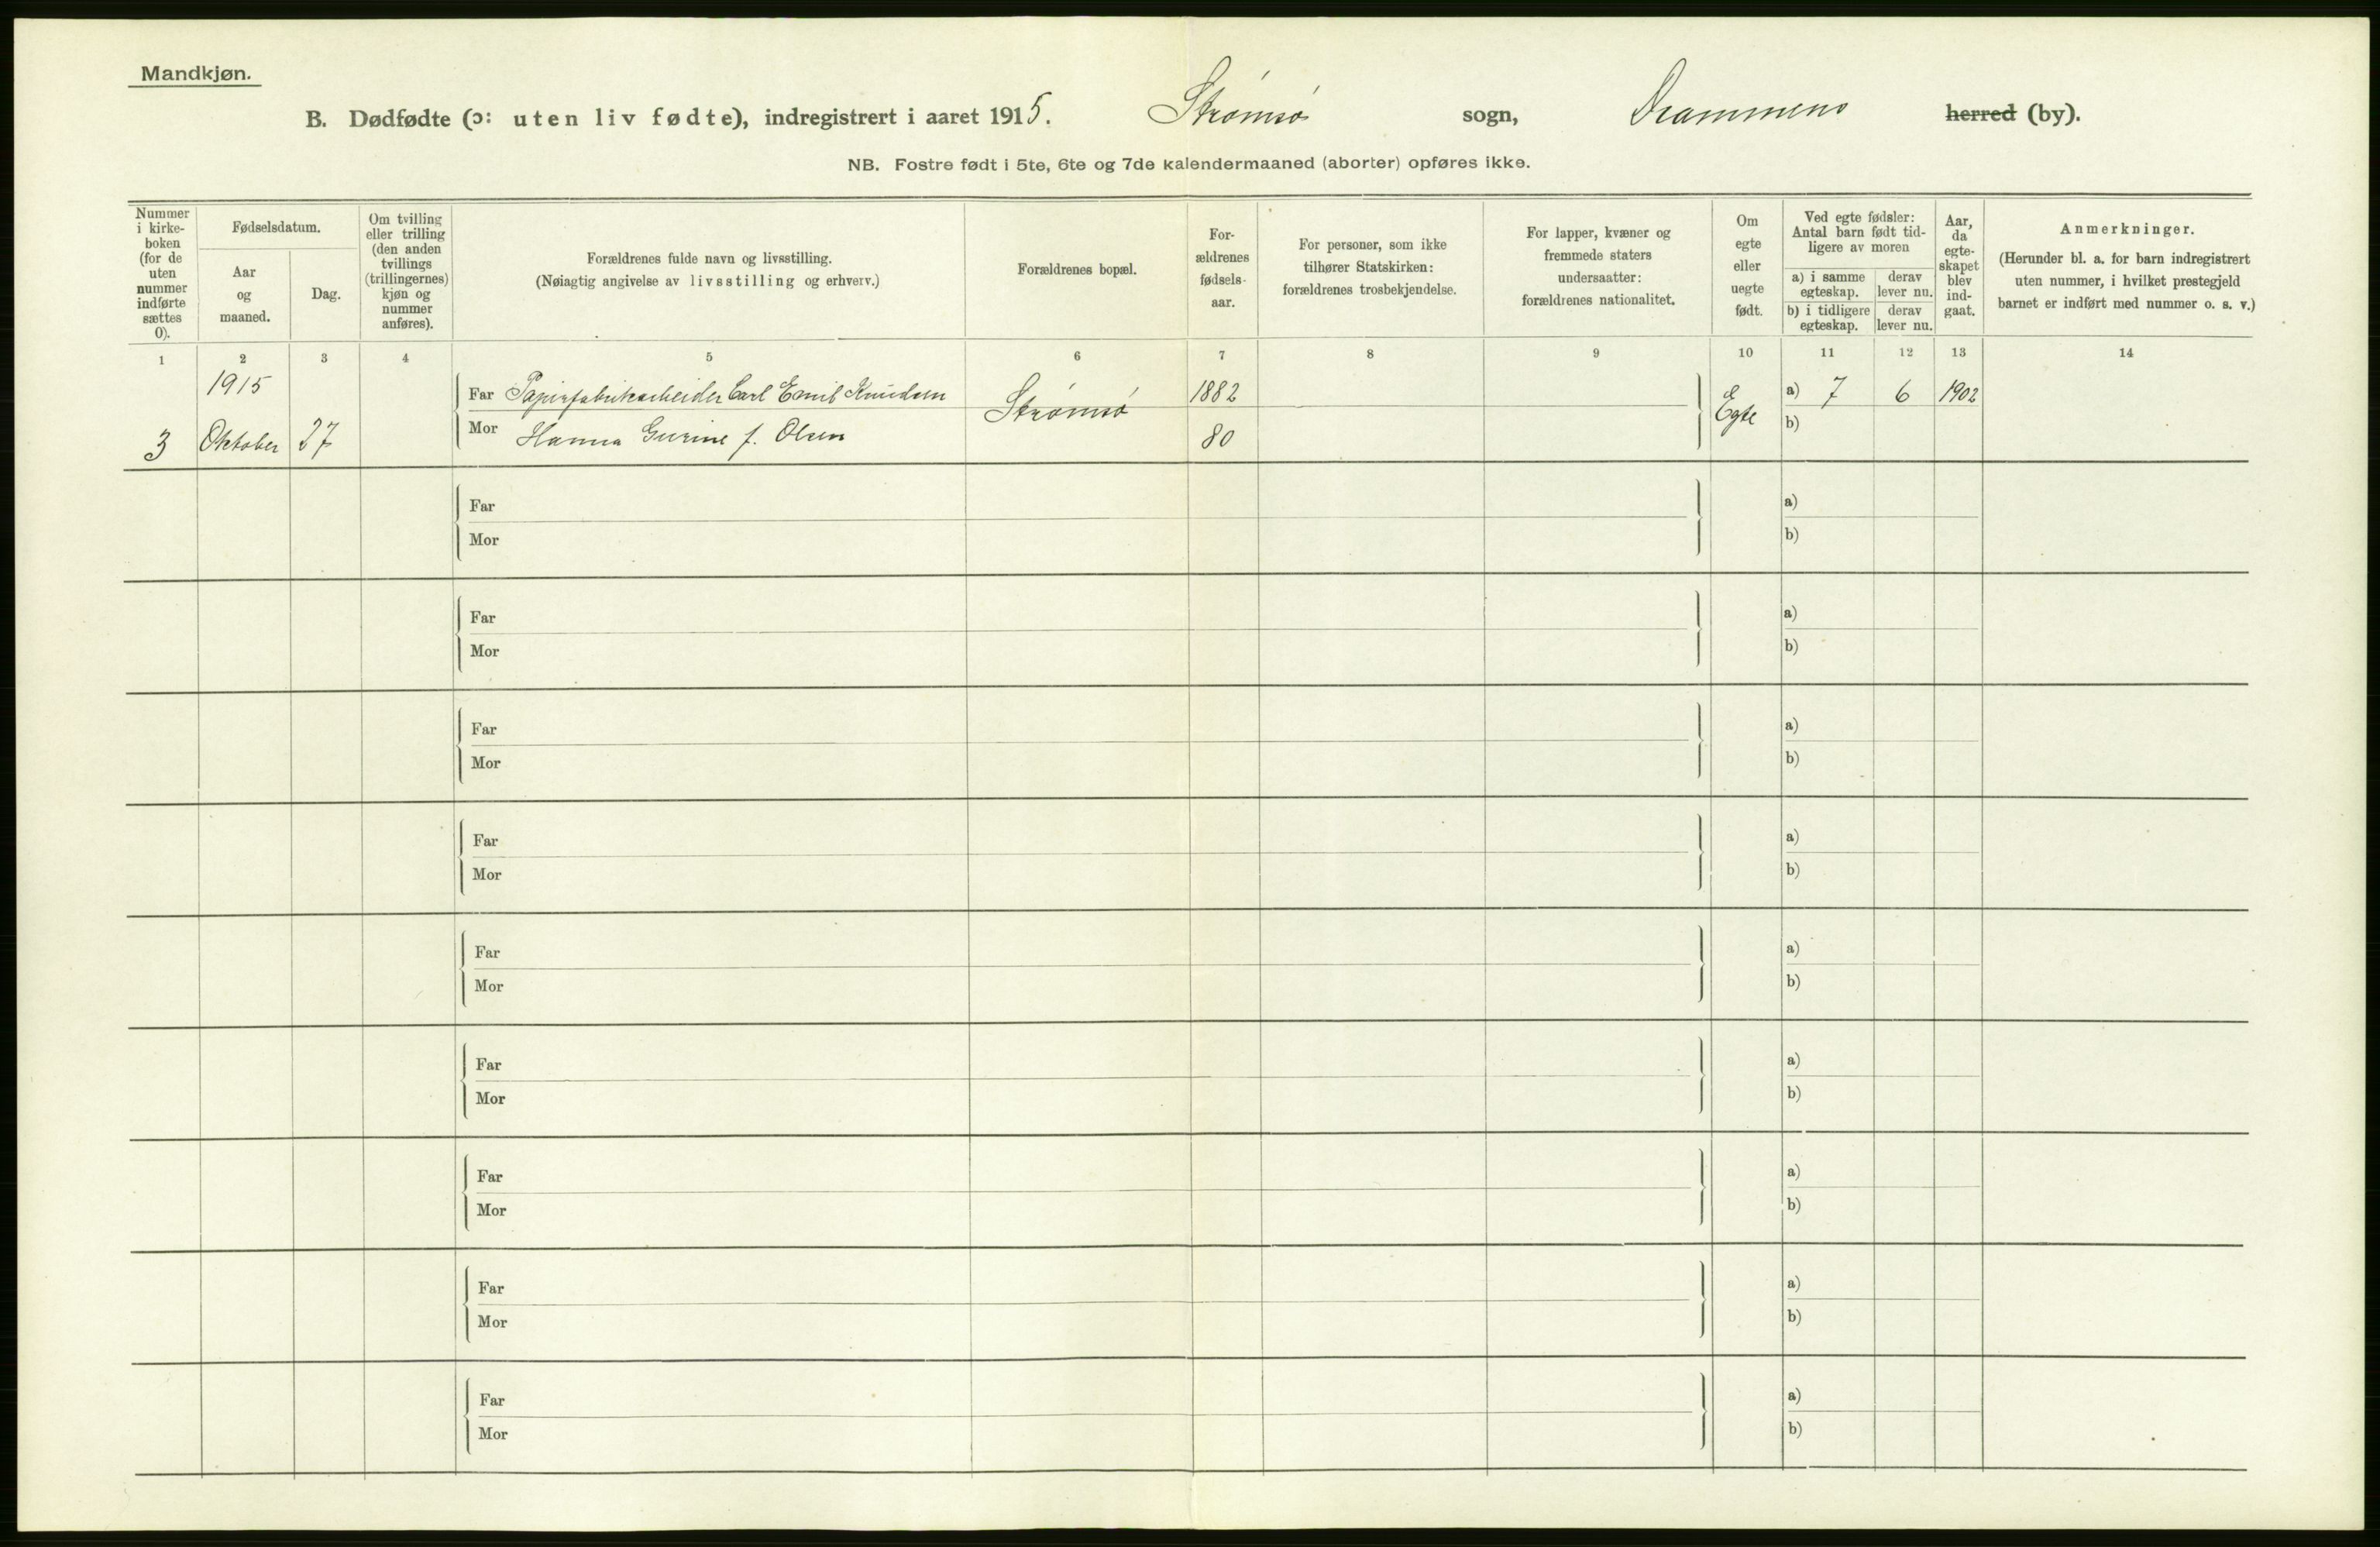 Mandkjøn.
B. Dødfødte (ɔ: uten liv fødte), indregistrert i aaret 1915. Strømsø sogn, Drammens herred (by).
NB. Fostre født i 5te, 6te og 7de kalendermaaned (aborter) opføres ikke.
Nummer
i kirke-
boken
(for de
uten
nummer
indførte
sættes
0).
Fødselsdatum.
Aar
og
maaned.
Dag.
Om tvilling
eller trilling
(den anden
tvillings
(trillingernes)
kjøn og
nummer
anføres).
Forældrenes fulde navn og livsstilling.
(Nøiagtig angivelse av livsstilling og erhverv.)
Forældrenes bopæl.
For-
ældrenes
fødsels-
aar.
For personer, som ikke
tilhører Statskirken:
forældrenes trosbekjendelse.
For lapper, kvæner og
fremmede staters
undersaatter:
forældrenes nationalitet.
Om
egte
eller
uegte
født.
Ved egte fødsler:
Antal barn født tid-
ligere av moren
a) i samme
egteskap.
derav
lever nu.
b) i tidligere
egteskap.
derav
lever nu.
Aar,
da
egte-
skapet
blev
ind-
gaat.
Anmerkninger.
(Herunder bl. a. for barn indregistrert
uten nummer, i hvilket prestegjeld
barnet er indført med nummer o. s. v.)
1 2 3 4 5 6 7 8 9 10 11 12 13 14
1915
Far Papirfabrikarbeider Carl Emil Knudsen Strømsø 1882 Egte a) 7 6 1902
3 Oktober 27 Mor Hanna Gurine f. Olsen 80 b)
Far a)
Mor b)
Far a)
Mor b)
Far a)
Mor b)
Far a)
Mor b)
Far a)
Mor b)
Far a)
Mor b)
Far a)
Mor b)
Far a)
Mor b)
Far a)
Mor b)